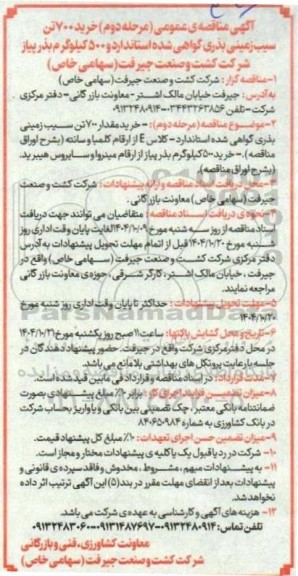 آگهی مناقصه ی عمومی (مرحله دوم) خرید ۷۰۰ تن
سیب زمینی بذری گواهی شده استاندارد و ۵۰۰ کیلوگرم بذر پیاز
شرکت کشت و صنعت جیرفت (سهامی خاص)
۱- مناقصه گزار: شرکت کشت و صنعت جیرفت (سهامی خاص)
به آدرس: جیرفت خیابان مالک اشتر - معاونت بازرگانی - دفتر مرکزی
شرکت - تلفن ۰۳۴۴۳۲۶۳۸۵۶ - ۰۹۱۳۲۴۸۰۹۱۴
۲- موضوع مناقصه (مرحله دوم): - خرید مقدار ۷۰۰ تن سیب زمینی
بذری گواهی شده استاندارد - کلاس E از ارقام کلمبا و سانته (بشرح اوراق
مناقصه). - خرید ۵۰۰ کیلوگرم بذر پیاز از ارقام میندرو و سایروس هیبرید.
(بشرح اوراق مناقصه).
۳- محل دریافت اسناد مناقصه و ارائه پیشنهادات: شرکت کشت و صنعت
جیرفت (سهامی خاص) معاونت بازرگانی.
۴- نحوه ی دریافت اسناد مناقصه: متقاضیان می توانند جهت دریافت
اسناد مناقصه از روز سه شنبه مورخ ۱۴۰۴/۱۰/۰۹ لغایت پایان وقت اداری روز
شنبه مورخ ۱۴۰۴/۱۰/۲۰ قبل از اتمام مهلت تحویل پیشنهادات به آدرس
دفتر مرکزی شرکت کشت و صنعت جیرفت (سهامی خاص) واقع در
جیرفت، خیابان مالک اشتر، کارگر شرقی، حوزه ی معاونت بازرگانی
مراجعه نمایند.
۵- مهلت تحویل پیشنهادات: حداکثر تا پایان وقت اداری روز شنبه مورخ
۱۴۰۴/۱۰/۲۰
۶- تاریخ و محل گشایش پاکتها: ساعت ۱۱ صبح روز یکشنبه مورخ ۱۴۰۴/۱۰/۲۱
در محل دفتر مرکزی شرکت واقع در جیرفت. حضور پیشنهاد دهندگان در
جلسه با رعایت پروتکل های بهداشتی بلامانع می باشد.
۷- مدت قرارداد: در اسناد مناقصه و قرارداد فی مابین قید شده است.
۸- میزان تضمین فرآیند ارجاع کار: برابر ۲۰٪ مبلغ پیشنهادی بصورت
ضمانتنامه بانکی معتبر، چک تضمینی بین بانکی و یا واریز بحساب شرکت
در بانک کشاورزی به شماره ۸۴۰۶۵۰۹۸۴
۹- میزان تضمین حسن اجرای تعهدات: ۱۰٪ مبلغ کل پیشنهاد قیمت.
۱۰- شرکت در رد یا قبول یک یا کلیه ی پیشنهادات مختار و مجاز است.
۱۱- به پیشنهادات مبهم، مشروط، مخدوش و فاقد سپرده ی قانونی و
پیشنهادات بعد از انقضای مهلت مقرر در بند (۵) این آگهی ترتیب اثر داده
نخواهد شد.
۱۲- هزینه های آگهی و کارشناسی به عهده ی شرکت می باشد.
تلفن تماس: ۰۹۱۳۲۴۸۰۹۱۴-۰۹۱۳۱۴۸۷۶۹۷-۰۹۱۳۲۴۸۳۰۶۰
معاونت کشاورزی، فنی و بازرگانی
شرکت کشت و صنعت جیرفت (سهامی خاص)